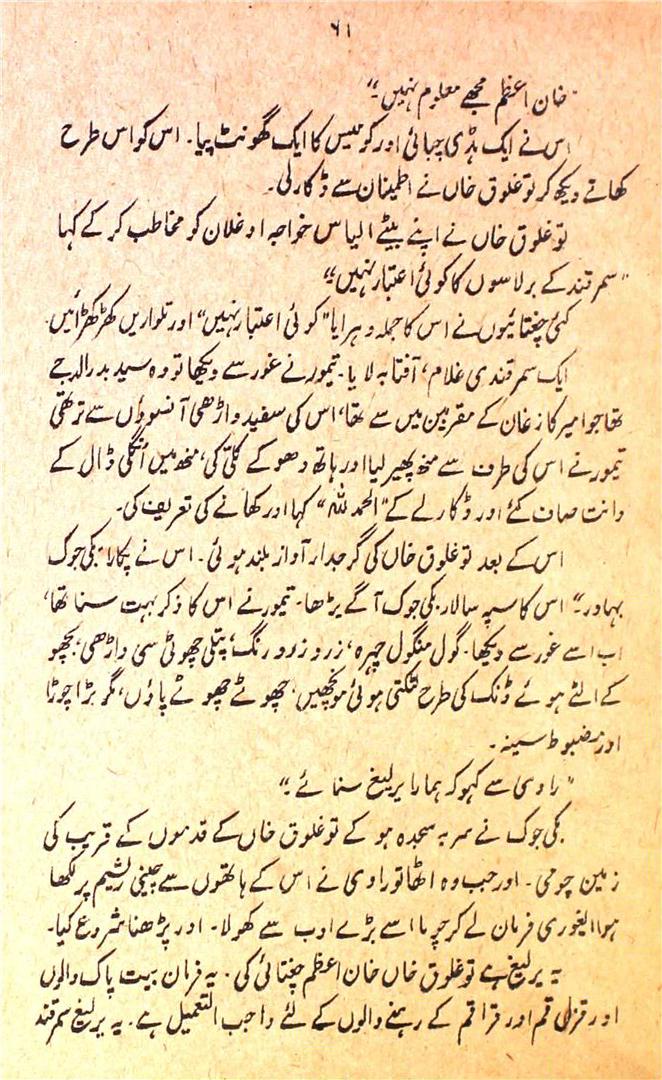 ۶۱
"خان اعظم مجھے معلوم نہیں۔"
اس نے ایک ہڈی چبائی اور کومیس کا ایک گھونٹ پیا۔ اس کو اس طرح
کھاتے دیکھ کر تو غلوق خاں نے اطینان سے ڈکار لی۔
تو غلوق خاں نے اپنے بیٹے الیاس خواجہ اوغلان کو مخاطب کر کے کہا
"سمرقند کے برلاسوں کا کوئی اعتبار نہیں"
کئی چغتائیوں نے اس کا جملہ دہرایا "کوئی اعتبار نہیں" اور تلواریں کھڑکھڑائیں۔
ایک سمرقندی غلام، آفتابہ لایا۔ تیمور نے غور سے دیکھا تو وہ سید بدرالدجےٰ
تھا جو امیر کازغان کے مقربین میں سے تھا، اس کی سفید داڑھی آنسوؤں سے تر تھی
تیمور نے اس کی طرف سے منھ پھیر لیا اور ہاتھ دھو کے کلّی کی، منھ میں انگلی ڈال کے
دانت صاف کئے اور ڈکار لے کے "الحمد للہ" کہا اور کھانے کی تعریف کی۔
اس کے بعد تو غلوق خاں کی گرجدار آواز بلند ہوئی۔ اس نے پکارا "بکی جوک
بہادر۔" اس کا سپہ سالار بکی جوک آگے بڑھا۔ تیمور نے اس کا ذکر بہت سنا تھا،
اب اسے غور سے دیکھا۔ گول منگول چہرہ، زرد زرد رنگ، پتلی چھوٹی سی داڑھی، بچھو
کے الٹے ہوئے ڈنک کی طرح لٹکتی ہوئی مونچھیں، چھوٹے چھوٹے پاؤں، مگر بڑا چوڑا
اور مضبوط سینہ۔
"راوی سے کہو کہ ہمارا یرلیغ سنائے۔"
بکی جوک نے سر بہ سجدہ ہو کے تو غلوق خاں کے قدموں کے قریب کی
زمین چومی۔ اور جب وہ اٹھا تو راوی نے اس کے ہاتھوں سے چینی ریشم پر لکھا
ہوا ایغوری فرمان لے کر چوما اسے بڑے ادب سے کھولا۔ اور پڑھنا شروع کیا۔
یہ یرلیغ ہے تو غلوق خاں خان اعظم چغتائی کی۔ یہ فرمان بیت پاک والوں
اور قزل قم اور قراقم کے رہنے والوں کے لئے واجب التعمیل ہے۔ یہ یرلیغ سمرقند